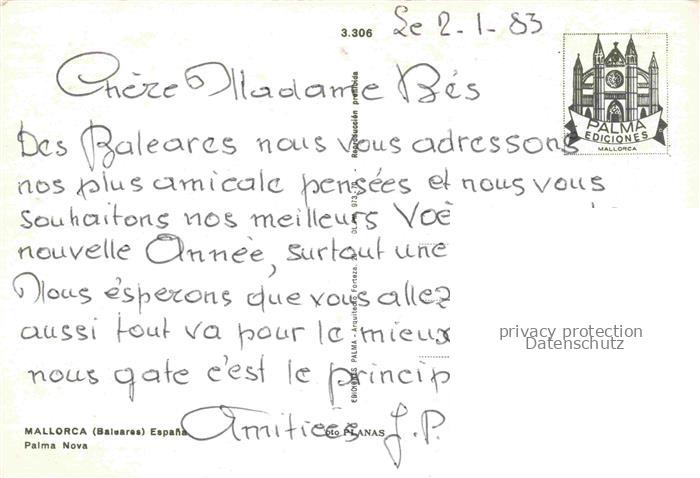 3.306
Le 2-1-83
Chère Madame Bés
PALMA
EDICIONES
MALLORCA
Des Baleares nous vous adressons
nos plus amicale pensées et nous vous
souhaitons nos meilleurs Voe
nouvelle Année, surtout une
Nous ésperons que vous allez
aussi tout va pour le mieux
nous gate c'est le princip
Amitiées J.P.
privacy protection
Datenschutz
MALLORCA (Baleares) España
Palma Nova
Foto PLANAS
EDICIONES PALMA - Arquitecto Forteza,
Reproducción prohibida